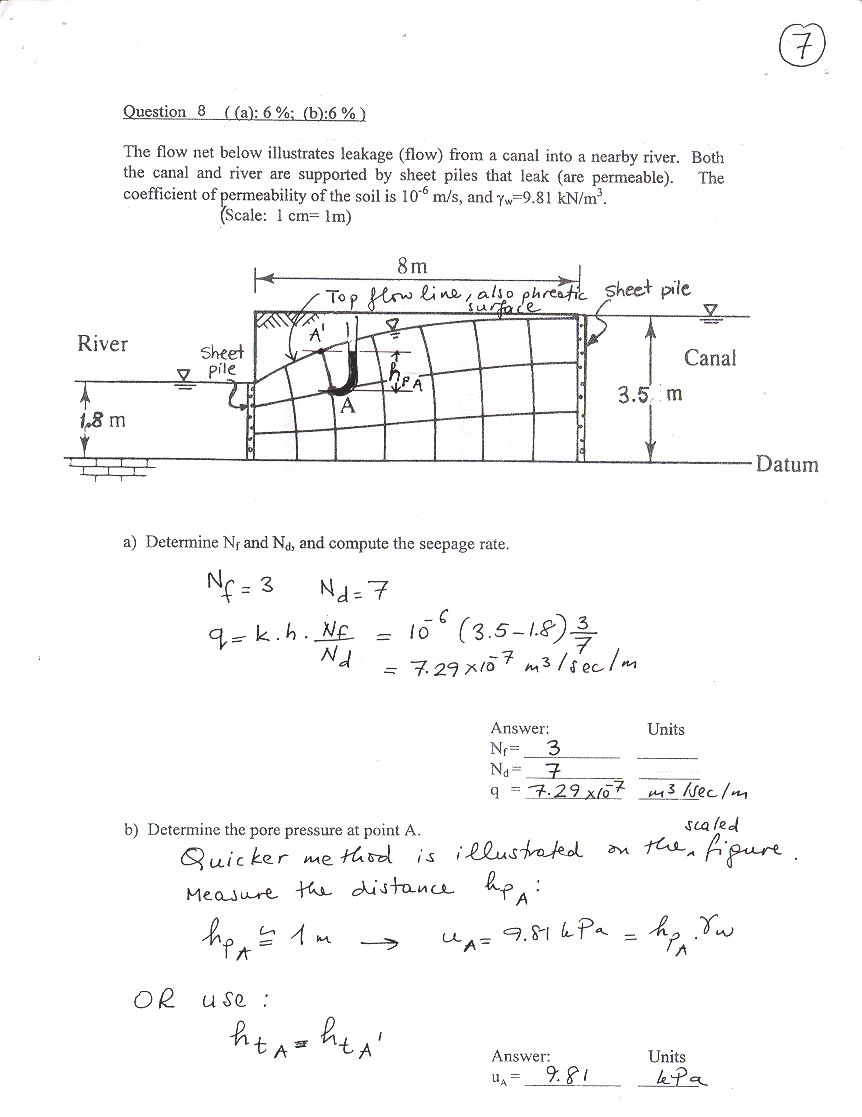 7
Question 8 ( (a): 6 %; (b):6 % )
The flow net below illustrates leakage (flow) from a canal into a nearby river. Both
the canal and river are supported by sheet piles that leak (are permeable). The
coefficient of permeability of the soil is 10⁻⁶ m/s, and γw=9.81 kN/m³.
(Scale: 1 cm= 1m)
8m
Top flow line, also phreatic
surface
sheet pile
River
Sheet
pile
A'
Canal
hPA
A
3.5 m
1.8 m
Datum
a) Determine Nf and Nd, and compute the seepage rate.
Nf = 3 Nd = 7
q = k.h. Nf/Nd = 10⁻⁶ (3.5-1.8) 3/7
= 7.29 x10⁻⁷ m3/sec/m
Answer: Units
Nf= 3
Nd= 7
q = 7.29 x10⁻⁷ m3/sec/m
b) Determine the pore pressure at point A.
Quicker method is illustrated on the scaled figure.
Measure the distance hpA:
hpA ≅ 1 m → uA = 9.81 kPa = hpA.γw
OR use :
htA = htA'
Answer: Units
uA = 9.81 kPa